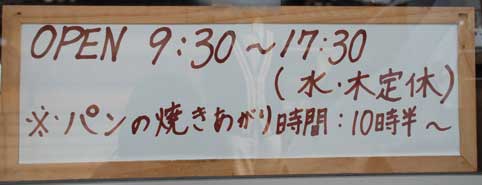 OPEN 9:30～17:30
(水・木定休)
※パンの焼きあがり時間：10時半～